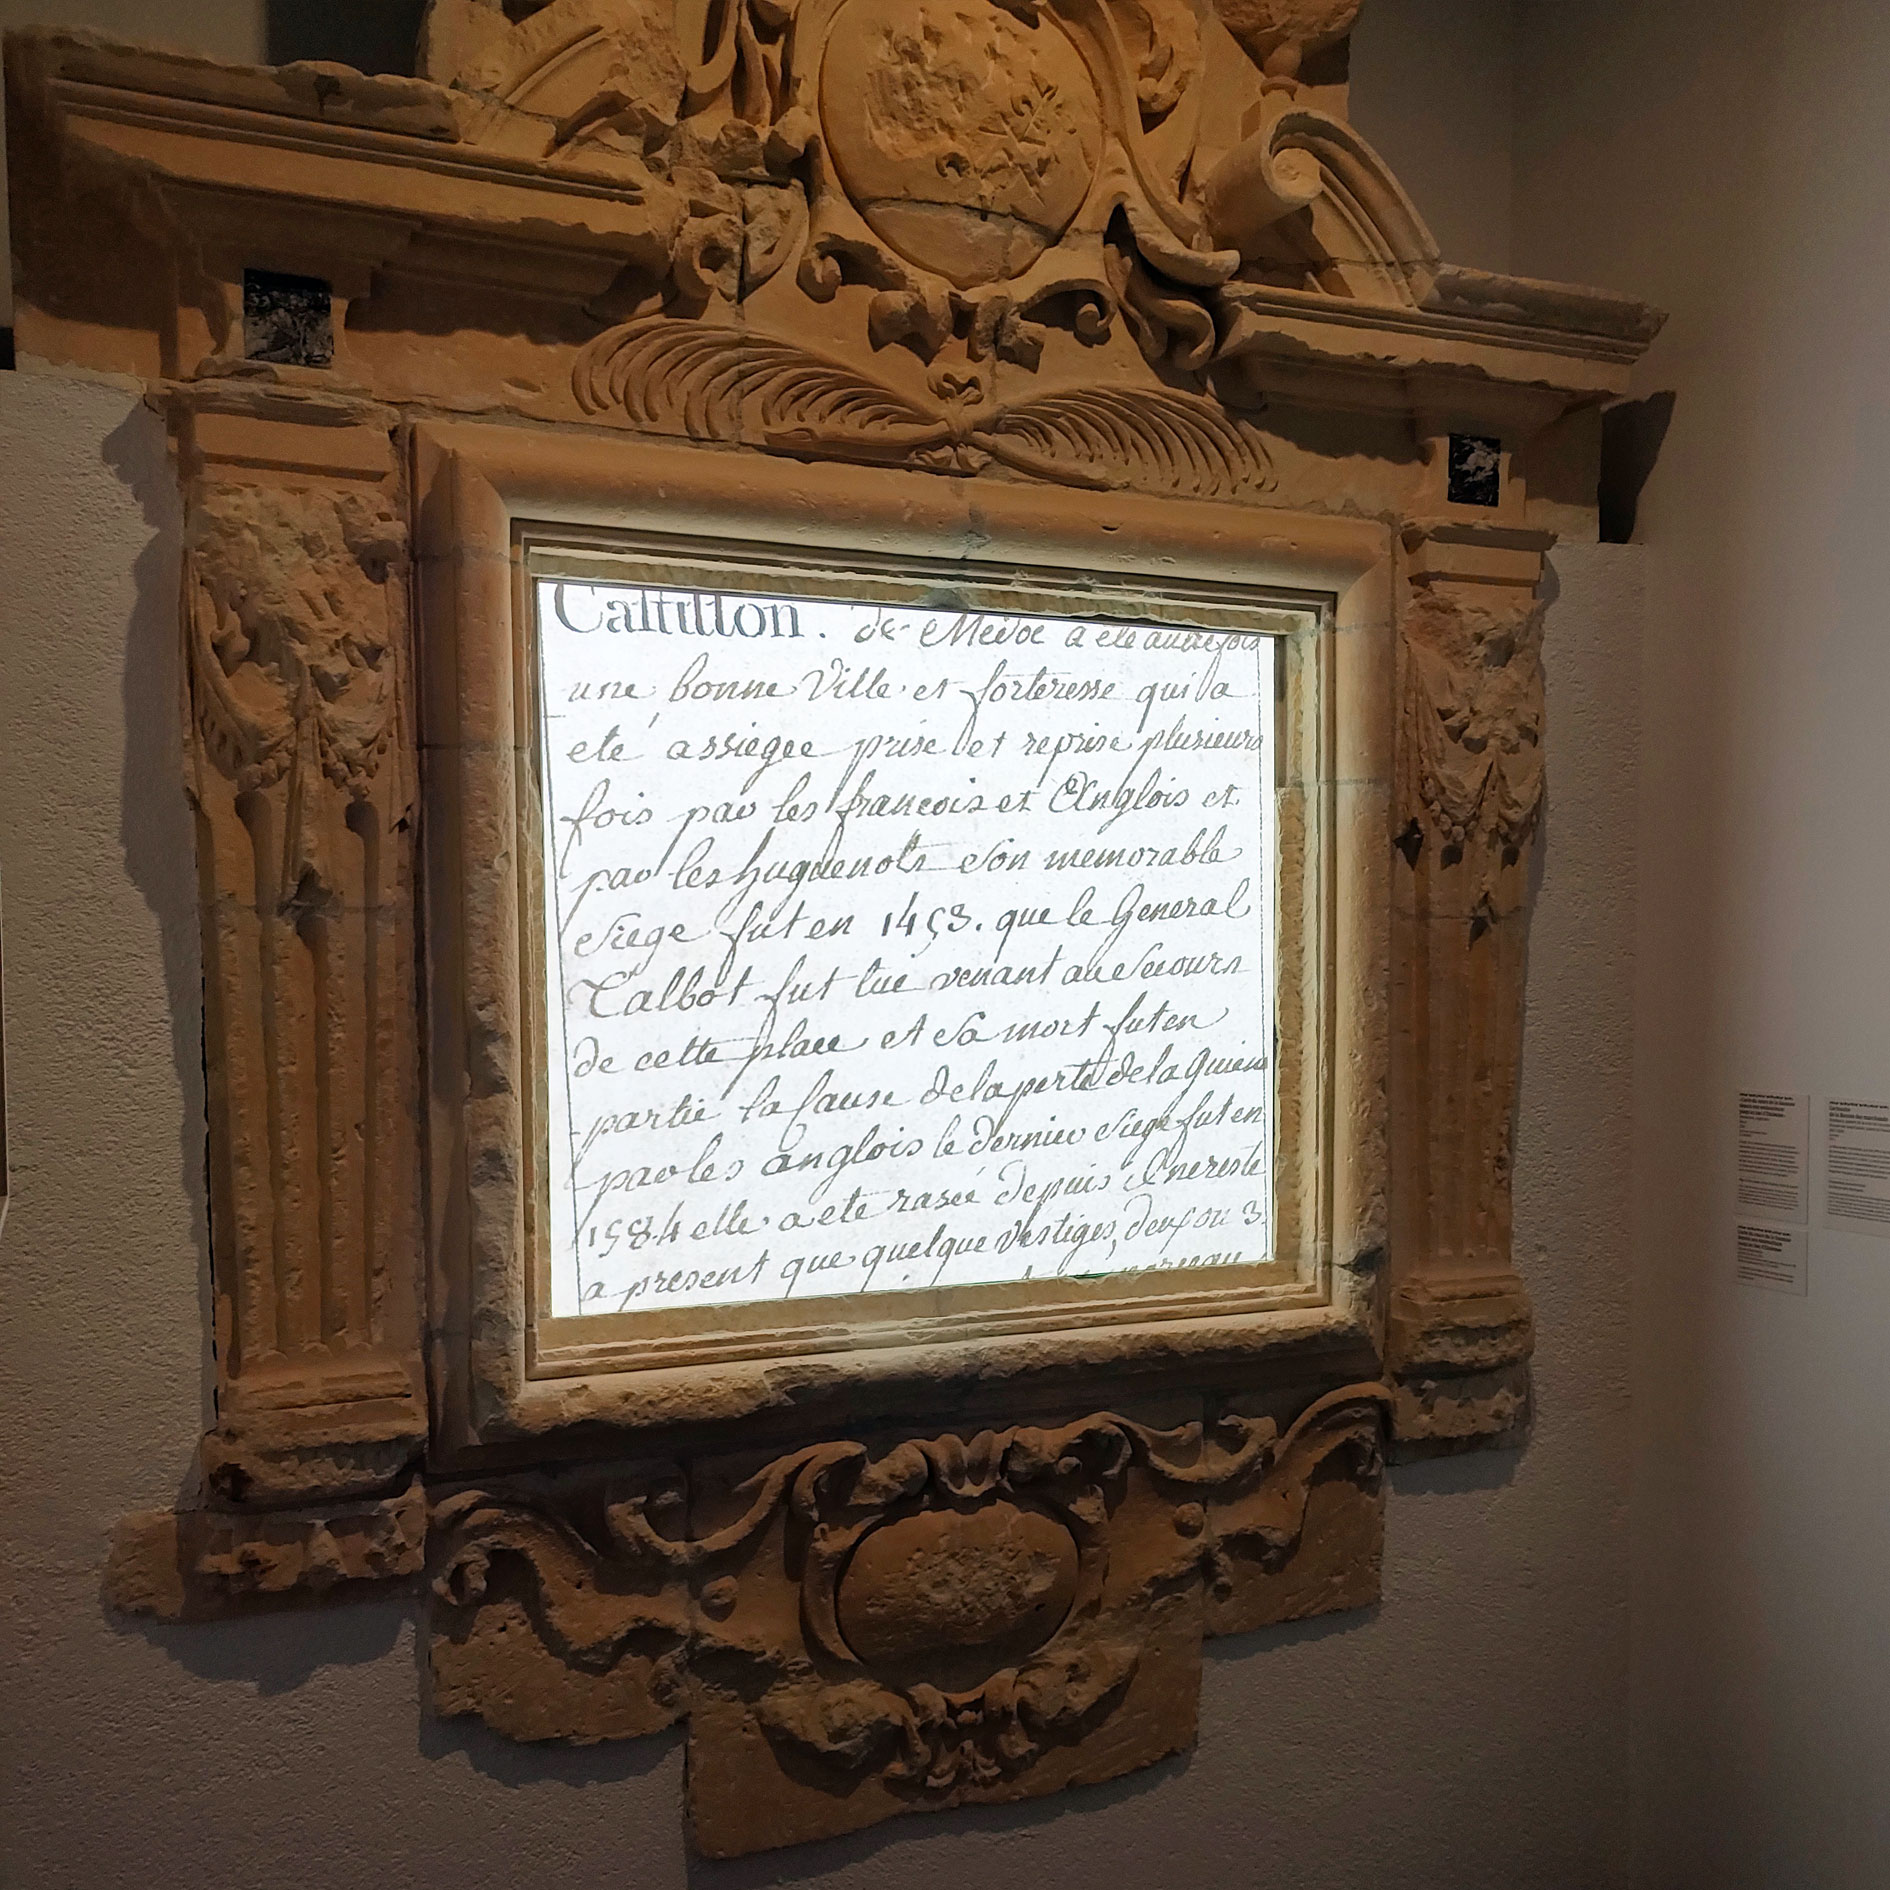 Castillon. de Medoc a ete autrefois
une bonne Ville et forteresse qui a
eté assiegee prise et reprise plusieurs
fois par les francois et Anglois et
par les huguenots Son memorable
Siege fut en 1453. que le General
Talbot fut tué venant au Secours
de cette place et Sa mort fut en
partie la Cause de la perte de la Guiene
par les anglois le dernier Siege fut en
1584 elle a eté rasée depuis il ne reste
a present que quelque Vestiges, deux ou 3.